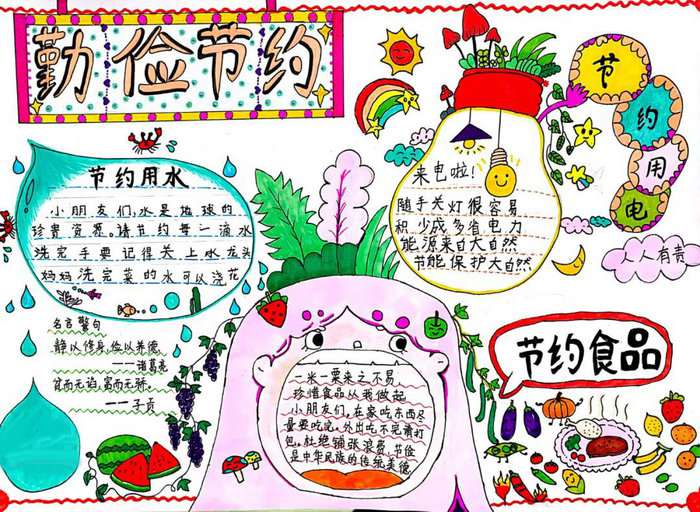 勤俭节约
节约用水
小朋友们,水是地球的
珍贵资源。请节约每一滴水
洗完手要记得关上水龙头
妈妈洗完菜的水可以浇花
名言警句
静以修身,俭以养德
——诸葛亮
贫而无谄,富而无骄。
——子贡
来电啦!
随手关灯很容易
积少成多省电力
能源来自大自然
节能保护大自然
节约用电
人人有责
一米一粟来之不易
珍惜食品从我做起
小朋友们,在家吃东西尽
量要吃完,外出吃不完需打
包。杜绝铺张浪费,节俭
是中华民族的传统美德
节约食品